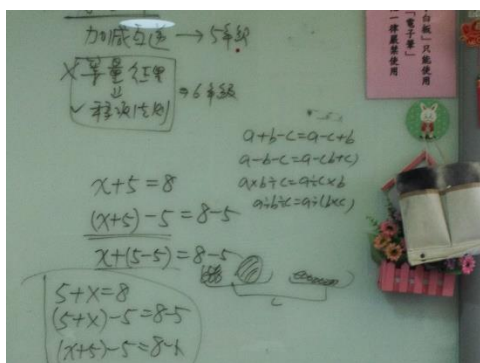 加減互逆 → 5年級
× 等量公理
↓
✓ 移項法則
⇒ 6年級
a+b-c=a-c+b
a-b-c=a-(b+c)
a×b÷c=a÷c×b
a÷b÷c=a÷(b×c)
x+5=8
(x+5)-5=8-5
x+(5-5)=8-5
5+x=8
(5+x)-5=8-5
(x+5)-5=8-5
白板」只能使用
「電子筆」
一律嚴禁使用